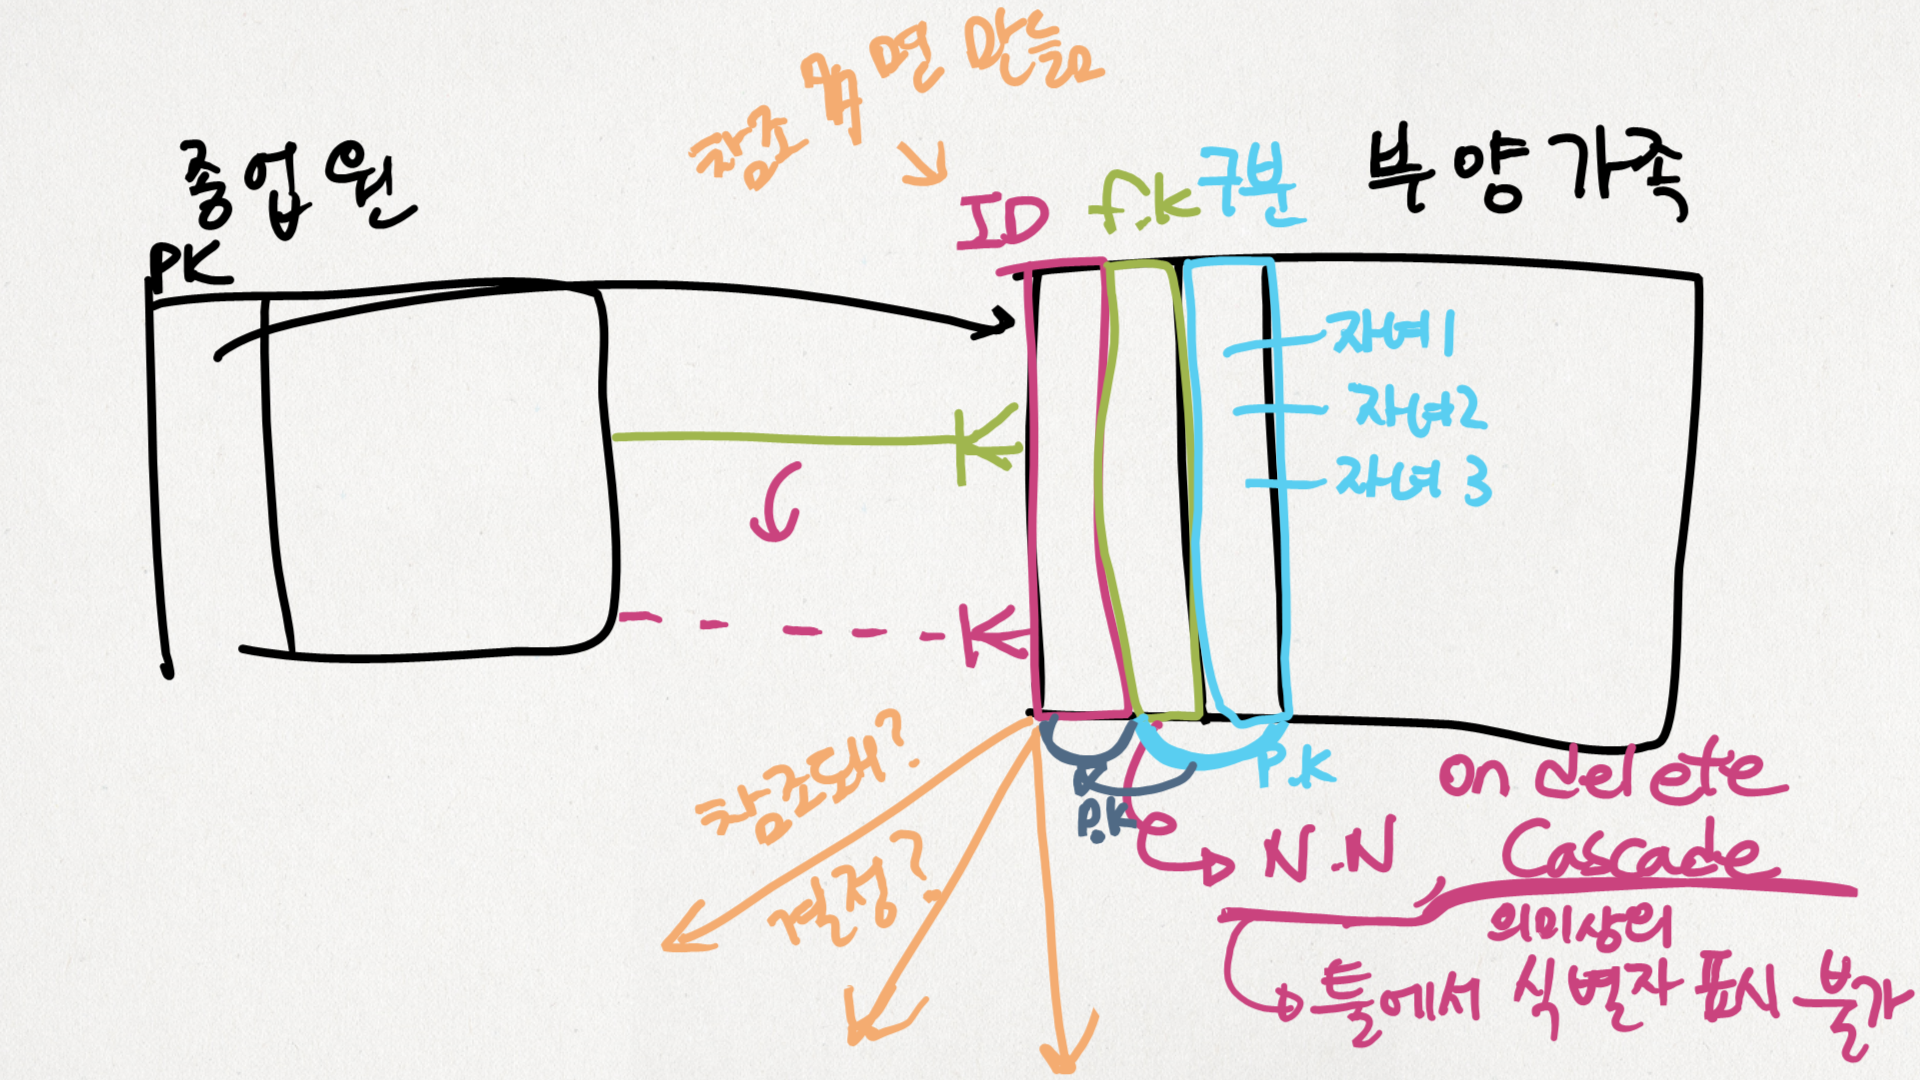 참조 폭 면 만듦
종업원
PK
ID
f.k
구분
부양가족
자녀1
자녀2
자녀 3
참조돼?
결정?
P.K
P.K
N.N
on delete
Cascade
의미상의
툴에서 식별자 표시 불가